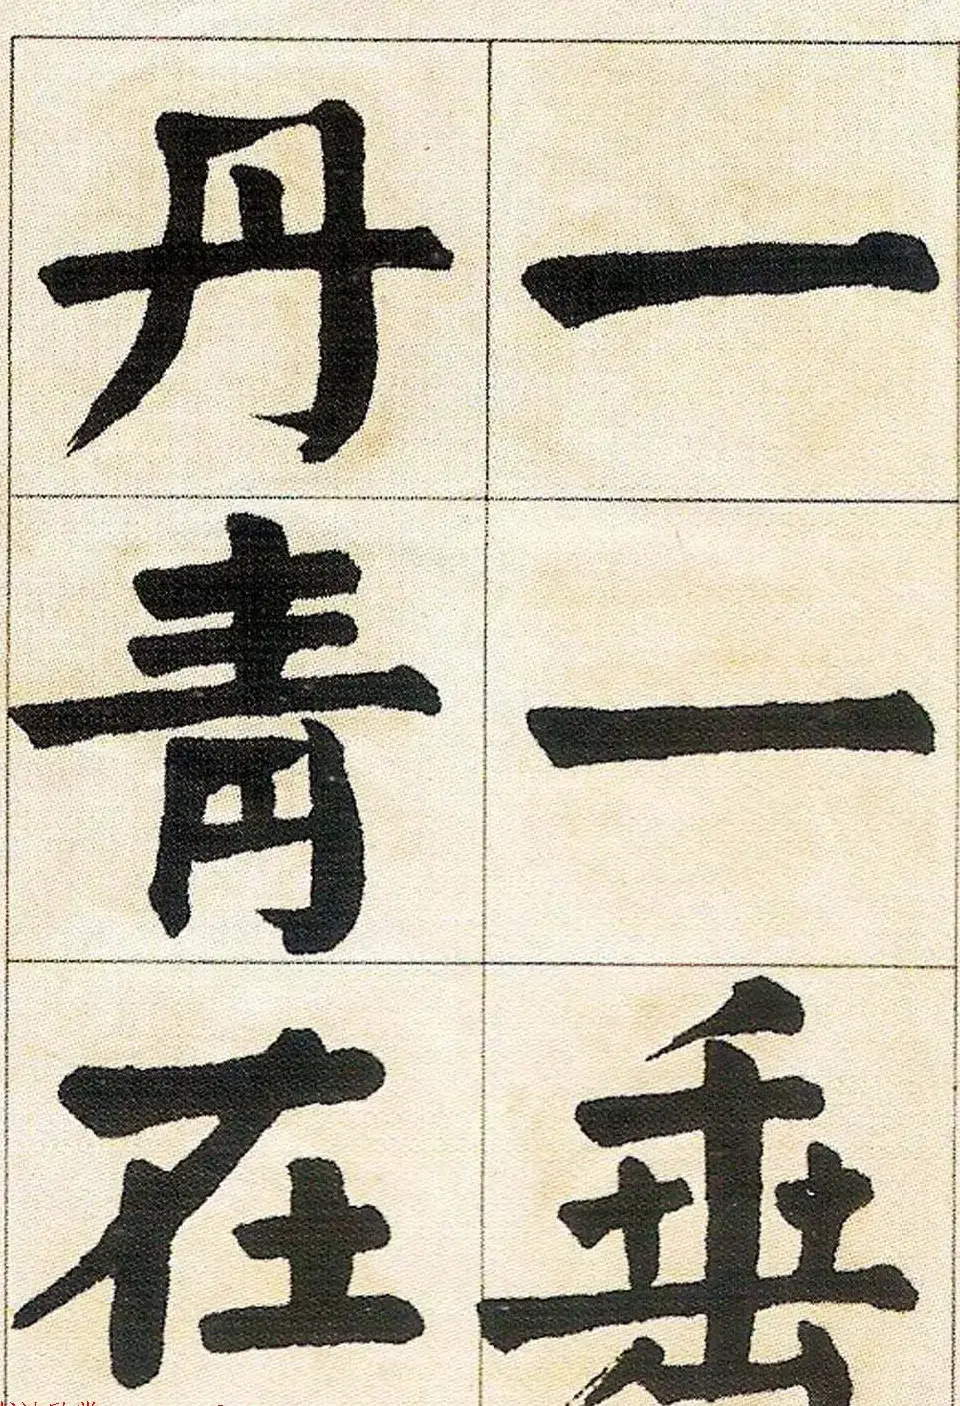 一一垂
丹青在